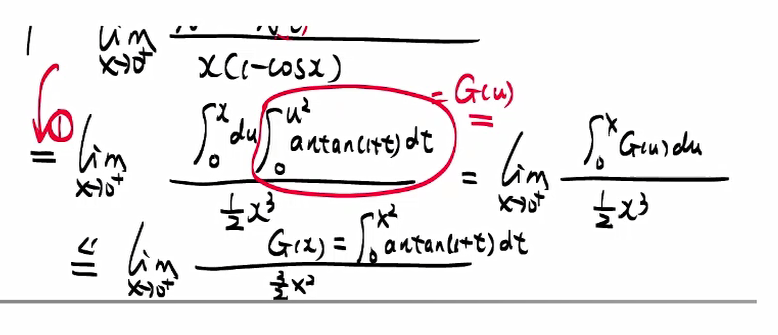 lim x→0⁺ ───── x(1-cosx)
① = lim x→0⁺ ∫₀ˣ du ∫₀^{u²} antan(1+t) dt / ½x³ = G(u) = lim x→0⁺ ∫₀ˣ G(u) du / ½x³
≝ lim x→0⁺ G(x) = ∫₀^{x²} antan(1+t) dt / 3/2 x²